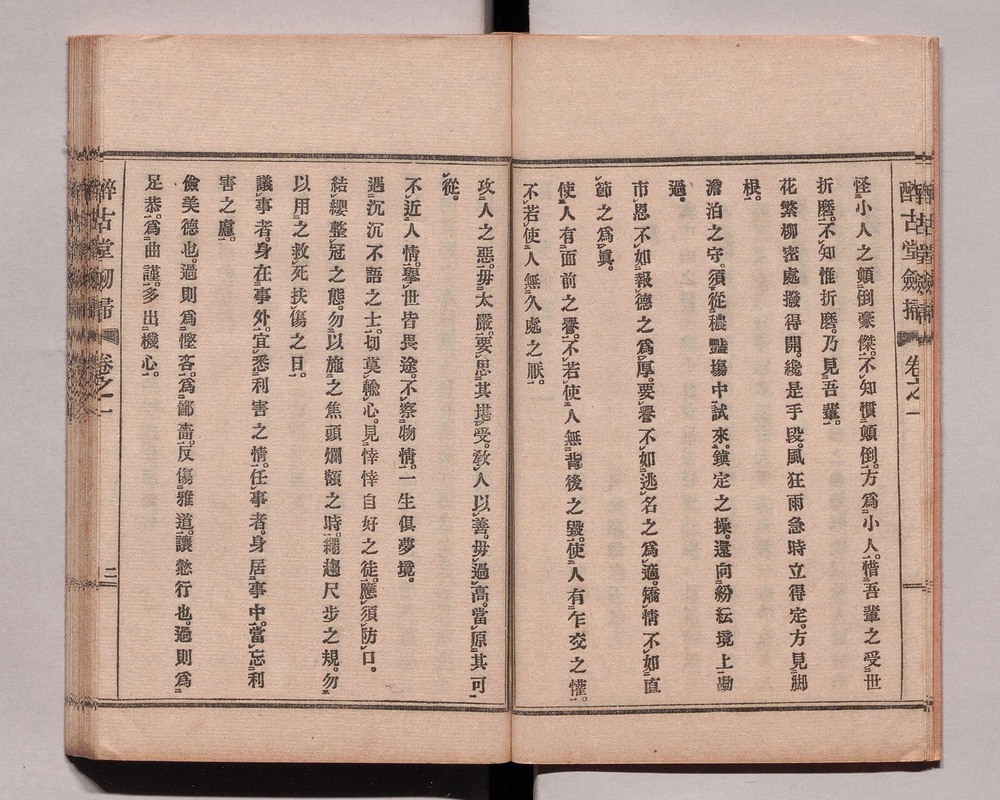 醉古堂劒掃 卷之一
怪小人之顛倒豪傑。不知慣顛倒。方爲小人。惜吾輩之受世
折磨。不知惟折磨。乃見吾輩。
花繁柳密處撥得開。纔是手段。風狂雨急時立得定。方見脚
根。
澹泊之守。須從穠豔場中試來。鎭定之操。還向紛紜境上勘
過。
市恩不如報德之爲厚。要譽不如逃名之爲適。矯情不如直
節之爲眞。
使人有面前之譽。不若使人無背後之毀。使人有乍交之懽。
不若使人無久處之厭。
攻人之惡。毋太嚴。要思其堪受。敎人以善。毋過高。當原其可
從。
不近人情。擧世皆畏途。不察物情。一生俱夢境。
遇沉沉不語之士。切莫輸心。見悻悻自好之徒。應須防口。
結纓整冠之態。勿以施之焦頭爛額之時。繩趨尺步之規。勿
以用之救死扶傷之日。
議事者。身在事外。宜悉利害之情。任事者。身居事中。當忘利
害之慮。
儉美德也。過則爲慳吝。爲鄙嗇。反傷雅道。讓懿行也。過則爲
足恭。爲曲謹。多出機心。
醉古堂劒掃 卷之一 二